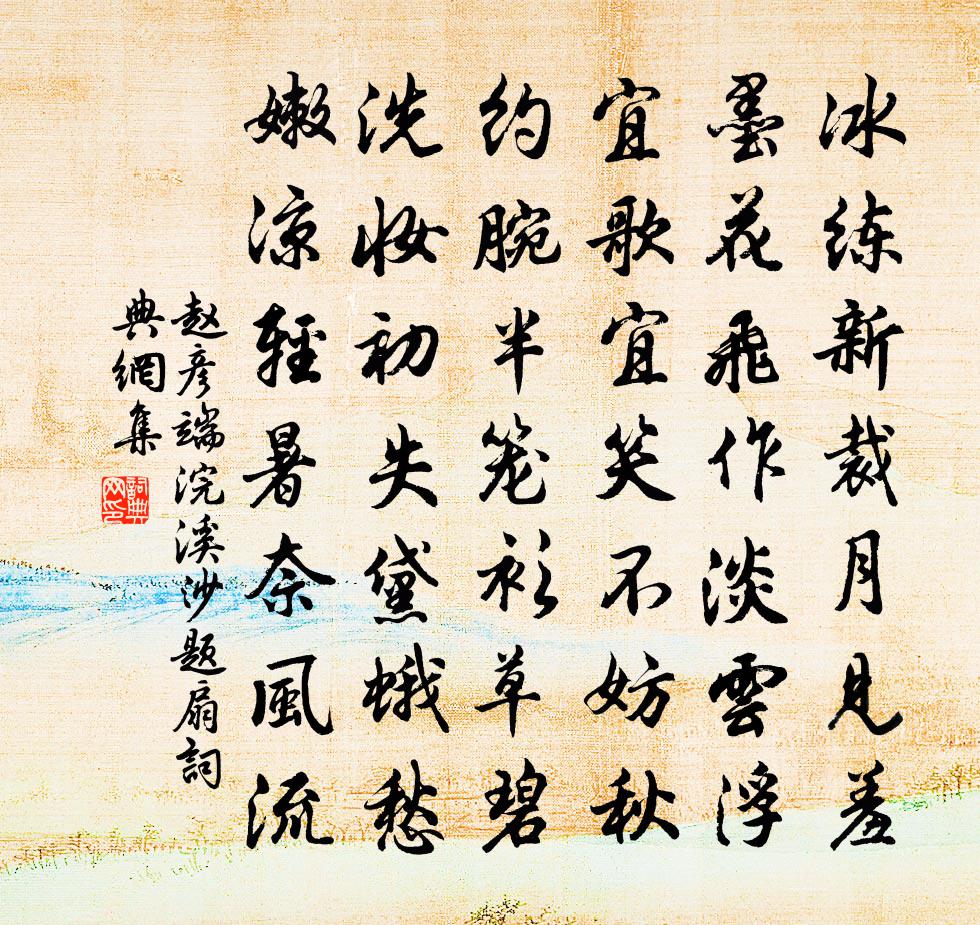 冰练新裁月見羞
墨花飛作淡雲浮
宜歌宜笑不妨秋
约腕半笼衫草碧
洗妆初失黛蛾愁
嫩凉輕暑奈風流
赵彦端浣溪沙题扇詞
典網集
詞典网印